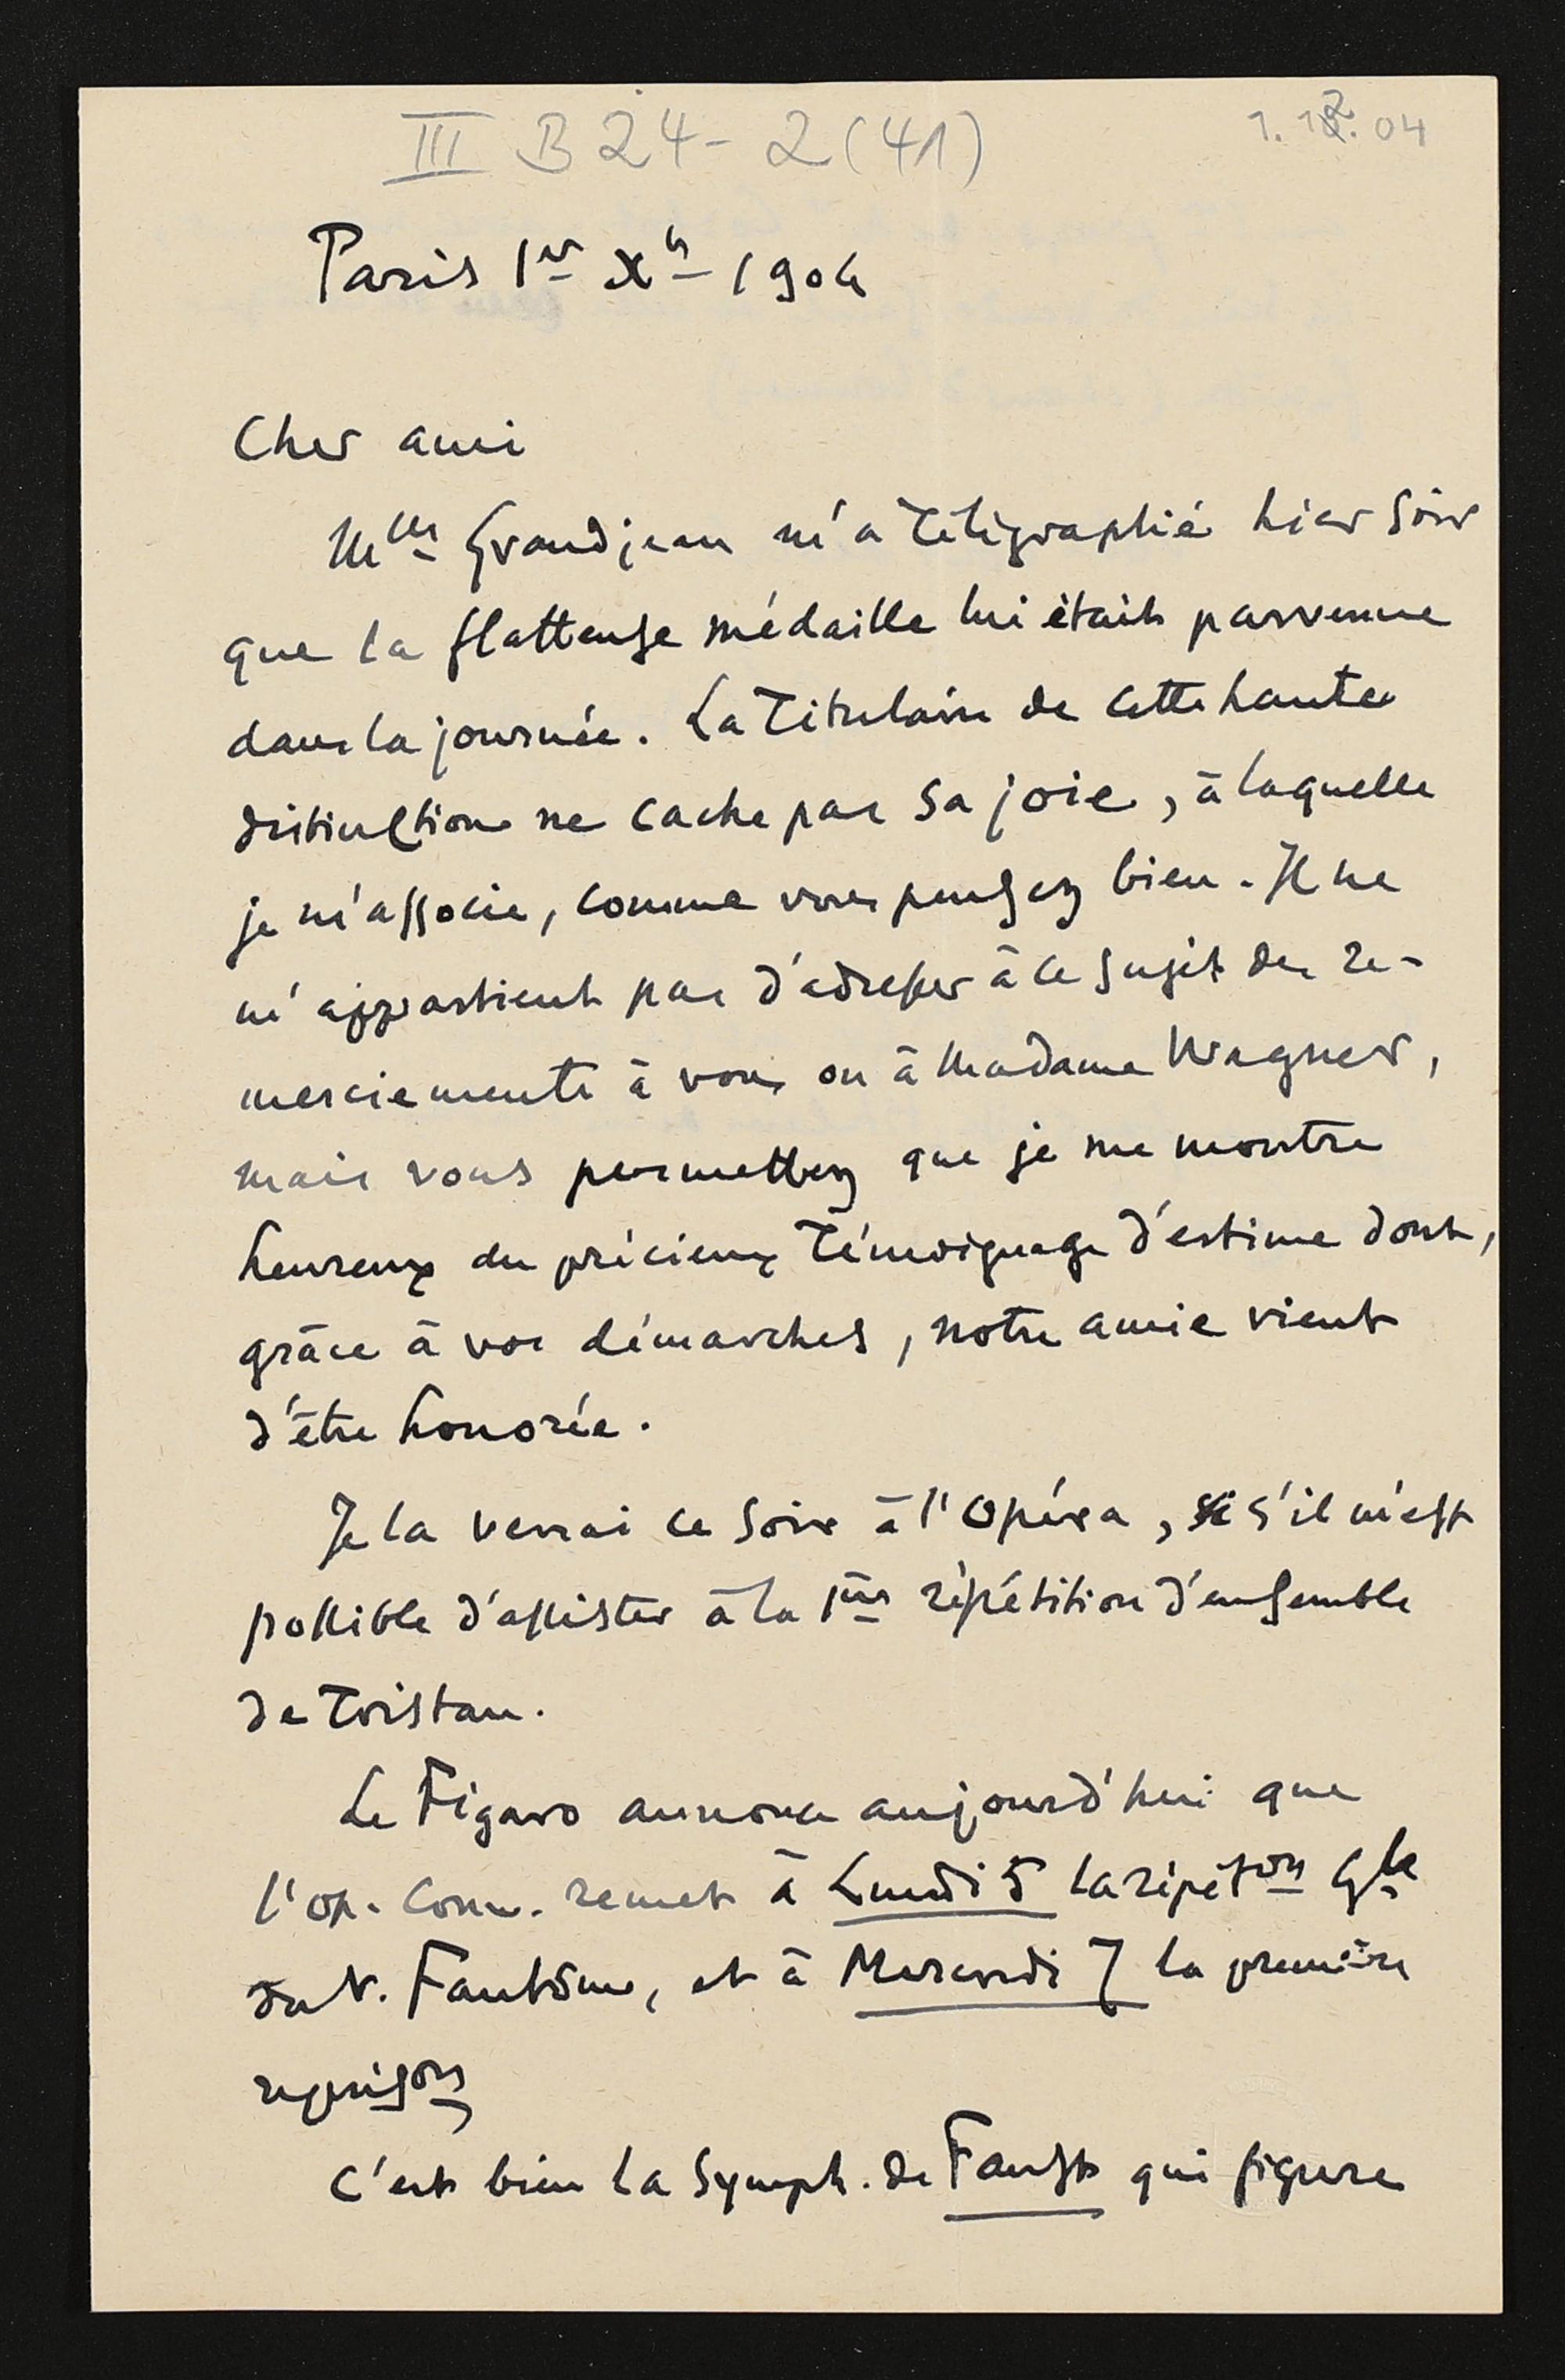 III B 24 - 2 (41)
1. 12. 04
Paris 1er Xbre 1904
Cher ami
Mlle Grandjean m'a télégraphié hier soir
que la flatteuse médaille lui était parvenue
dans la journée. La titulaire de cette haute
distinction ne cache pas sa joie, à laquelle
je m'associe, comme vous pensez bien. Il ne
m'appartient pas d'adresser à ce sujet des re-
merciements à vous ou à Madame Wagner,
mais vous permettez que je me montre
heureux du précieux témoignage d'estime dont,
grâce à vos démarches, notre amie vient
d'être honorée.
Je la verrai ce soir à l'Opéra, s'il m'est
possible d'assister à la 1ère répétition d'ensemble
de Tristan.
Le Figaro annonce aujourd'hui que
l'op. Com. remet à Lundi 5 la répéton Gle
du V. Fantôme, et à Mercredi 7 la première
représon
C'est bien la Symph. de Faust qui figure